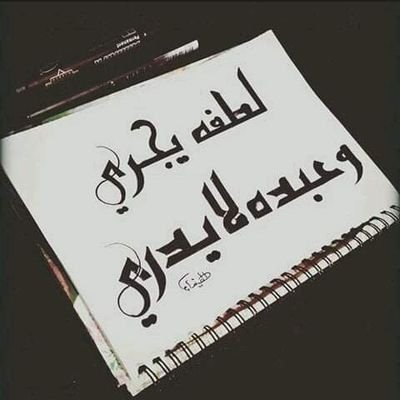 لطفه يجري
وعبده لا يدري